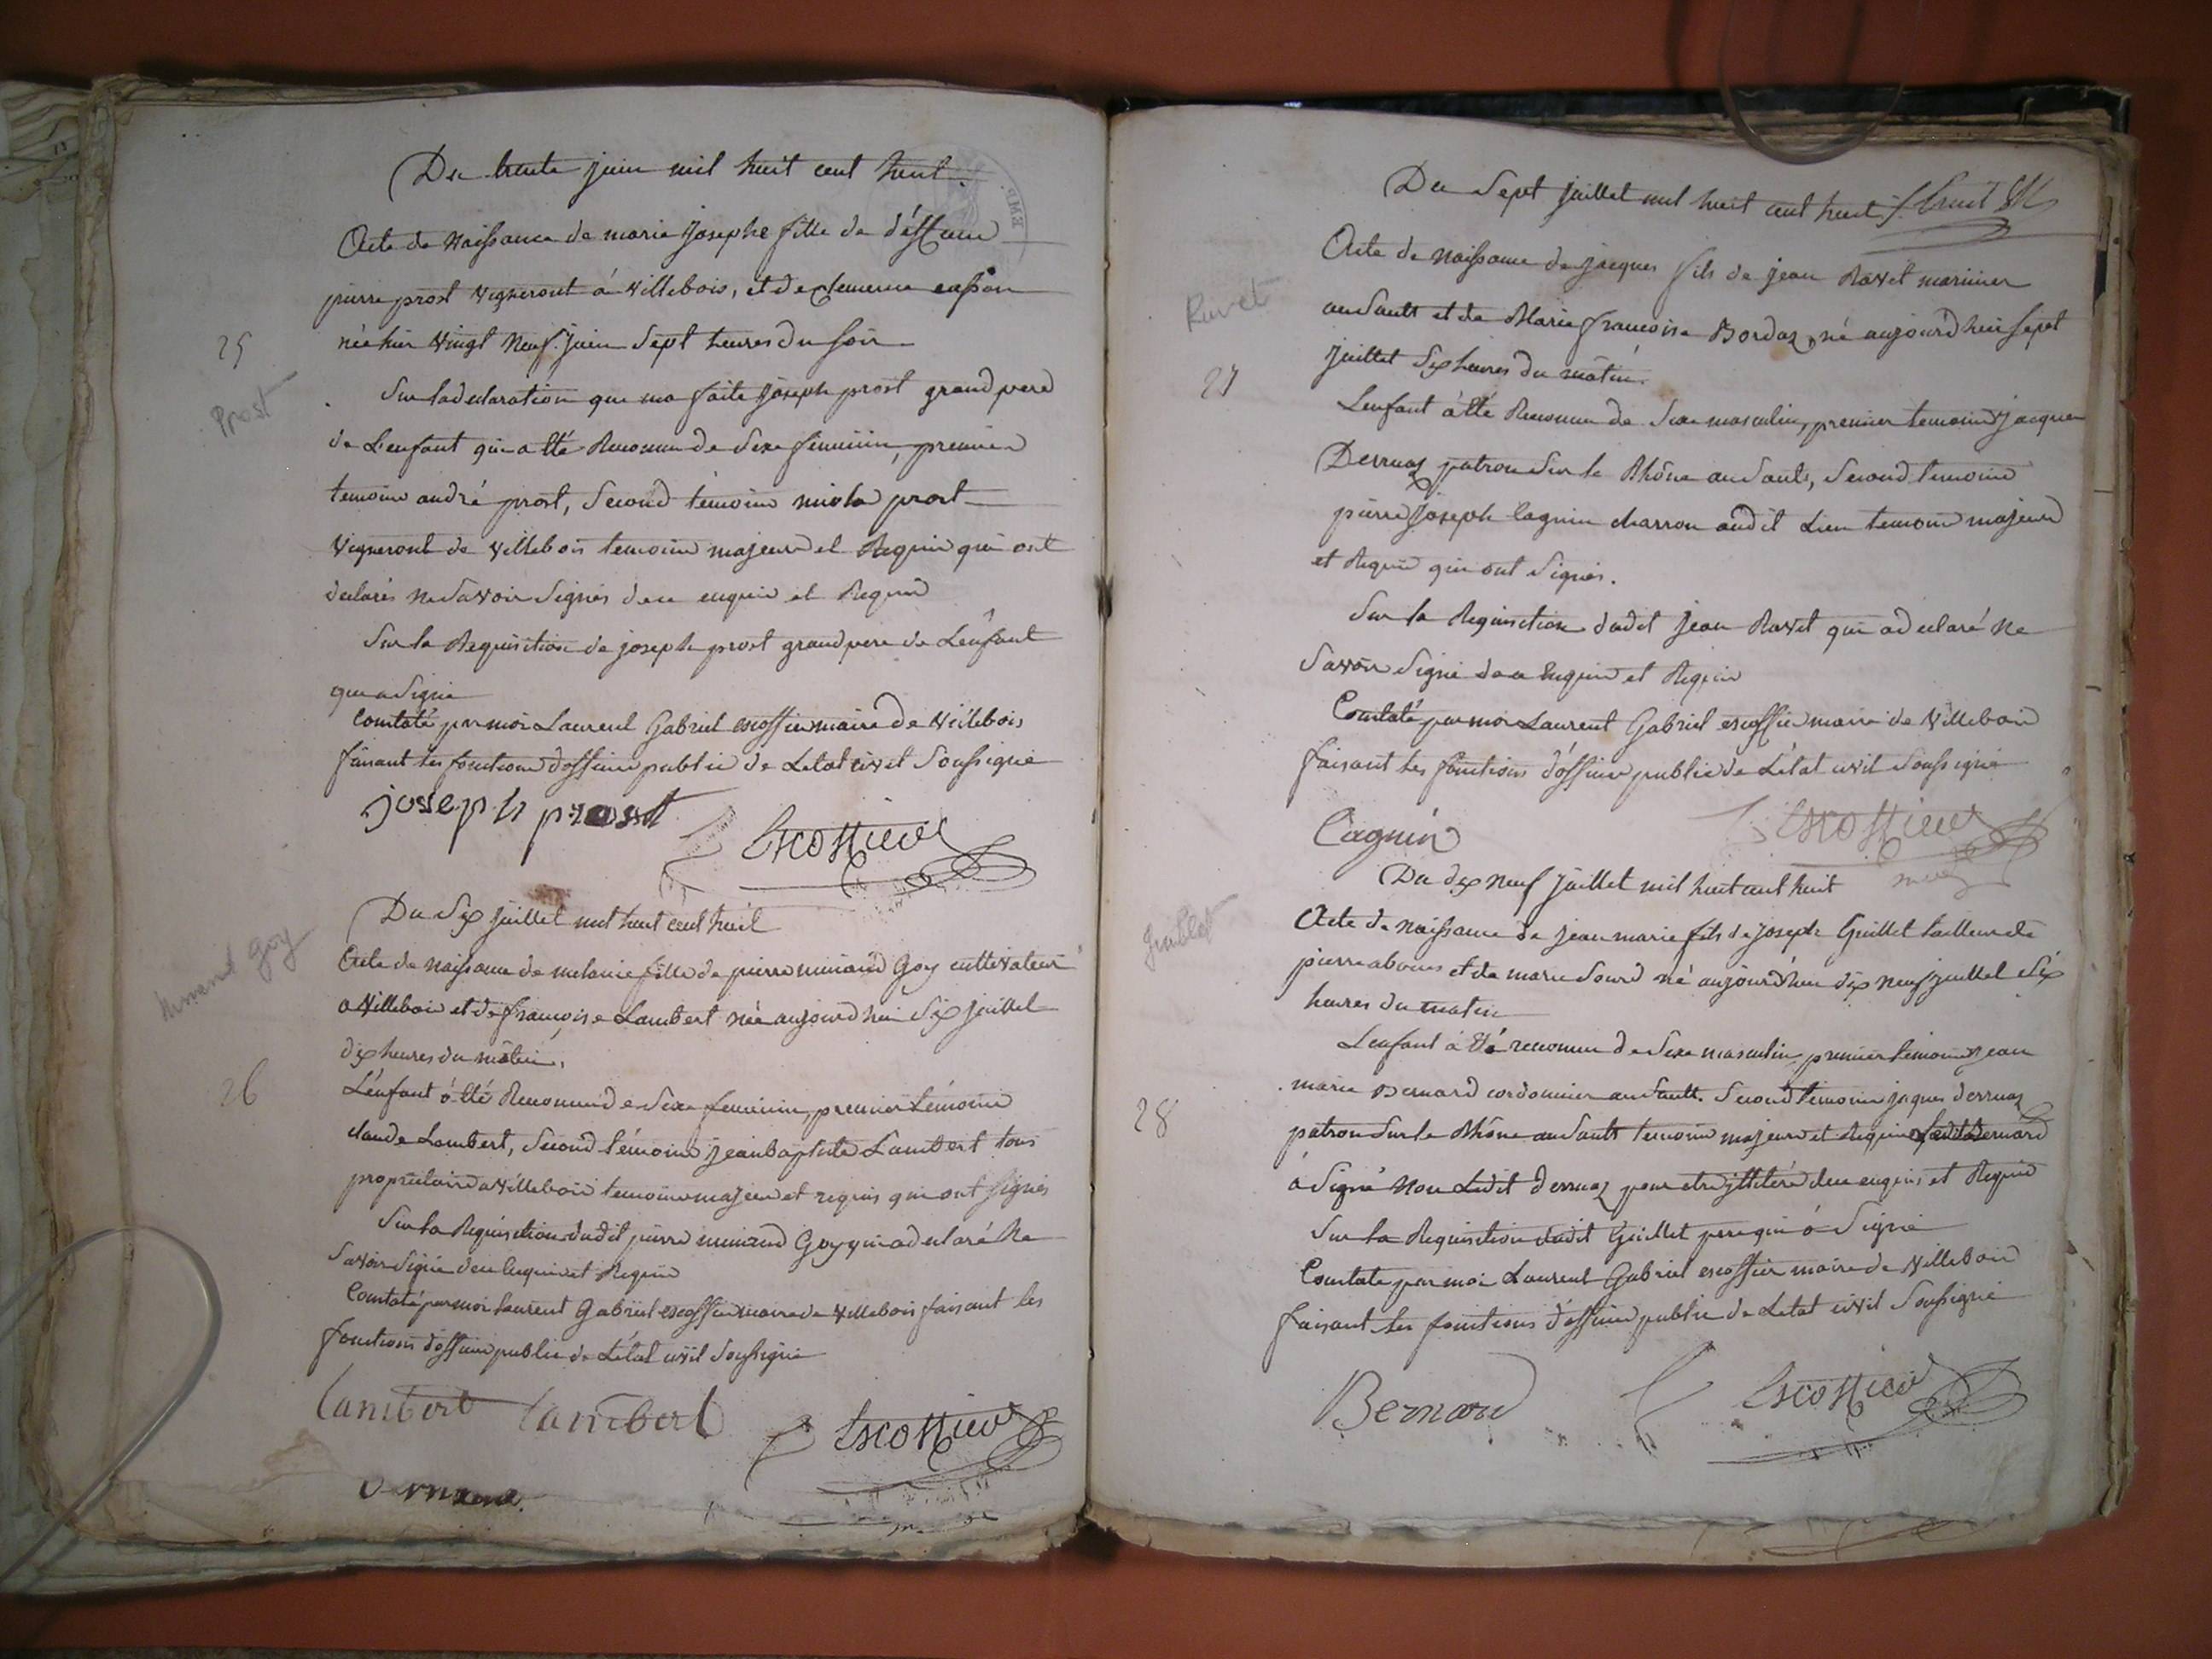 Du trente juin mil huit cent huit.
Acte de Naissance de marie Josephe fille de déffunt
pierre prost vigneront à villebois, et de clemence
née hier vingt neuf juin Sept heures du Soir
25
Prost
Sur la declaration que ma faite Joseph prost grand pere
de L'enfant qui a été Reconnu de Sexe féminin, premier
temoin andré prost, Second témoin nicola prost
vigneront de villebois temoins majeurs et Requis qui ont
declarés ne Savoir Signés de ce enquis et Requis
Sur la Requisition de joseph prost grand pere de L'enfant
qui a Signé
Constaté par moi Laurent Gabriel escoffier maire de villebois
faisant les fonctions d'officier public de L'etat civil Soussigné
joseph prost
Escoffier
Du Six juillet mil huit cent huit
Minand Goy
Acte de Naissance de melanie fille de pierre minand Goy cultivateur
a Villebois et de françoise Lambert née aujourd'hui Six juillet
dix heures du mâtin,
26
L'enfant à été Reconnu de Sexe feminin, premier témoin
claude Lambert, Second témoin jean baptiste Lambert tous
proprietaires a villebois temoins majeurs et requis qui ont signés
Sur la Requisition dudit pierre minand Goy qui a declaré ne
Savoir Signé de ce Enquis et Requis
Constaté par moi Laurent Gabriel escoffier maire de villebois faisant les
fonctions d'officier public de L'état civil Soussigné
Lambert Lambert
Escoffier
Du Sept juillet mil huit cent huit
Ravet
Acte de Naissance de jacques fils de jean Ravet marinier
au Sault et de Marie françoise Bordaz, né aujourd'hui Sept
27
juillet Six heures du mâtin.
L'enfant à été Reconnu de Sexe masculin, premier temoin jacques
Derruaz patron Sur le Rhône au Sault, Second temoin
pierre Joseph Cagnin charron audit Lieu temoins majeurs
et Requis qui ont Signés.
Sur la Requisition dudit jean Ravet qui a declaré ne
Savoir Signé de ce Enquis et Requis
Constaté par moi Laurent Gabriel escoffier maire de Villebois
faisant les fonctions d'officier public de L'état civil Soussigné
Cagnin
Escoffier
Du dix neuf juillet mil huit cent huit
Guillet
Acte de Naissance de jean marie fils de joseph Guillet tailleur de
pierre a bouis et de marie Sourd né aujourd'hui dix neuf juillet Six
heures du matin
L'enfant à été reconnu de Sexe masculin, premier temoin jean
marie Bernard cordonnier au Sault. Second temoin jaques derruaz
28
patron Sur le Rhône au Sault temoins majeurs et Requis Ledit Bernard
à Signé Non Ledit derruaz pour etre illiteré de ce enquis et Requis
Sur la Requisition dudit Guillet pere qui à Signé
Constaté par moi Laurent Gabriel escoffier maire de Villebois
faisant les fonctions d'officier public de L'etat civil Soussigné
Bernard
Escoffier